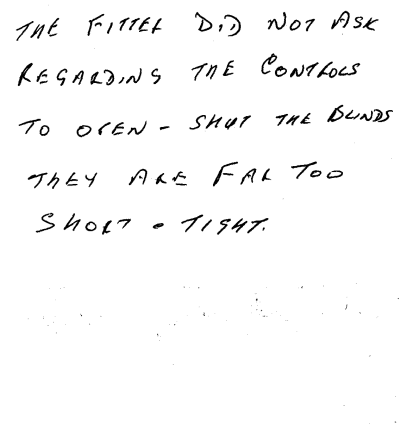 THE FITTER DID NOT ASK
REGARDING THE CONTROLS
TO OPEN - SHUT THE BLINDS
THEY ARE FAR TOO
SHORT - TIGHT.